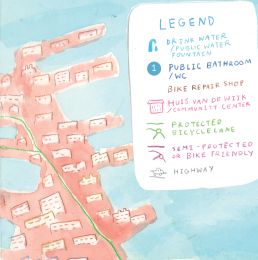 LEGEND
DRINK WATER
/PUBLIC WATER
FOUNTAIN
1 PUBLIC BATHROOM
/WC
BIKE REPAIR SHOP
HUIS VAN DE WIJK
/COMMUNITY CENTER
PROTECTED
BICYCLE LANE
SEMI-PROTECTED
OR BIKE FRIENDLY
HIGHWAY